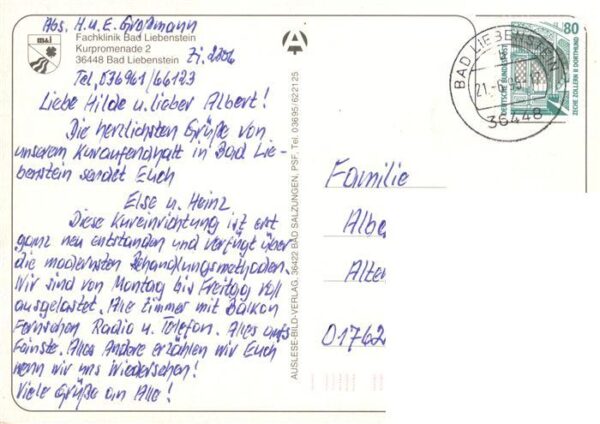 Abs. H. u. E. Großmann
Fachklinik Bad Liebenstein
Kurpromenade 2
36448 Bad Liebenstein Zi. 2306
Tel. 036961/66123
Liebe Hilde u. lieber Albert!
Die herzlichsten Grüße von
unserem Kuraufendhalt in Bad Lie-
benstein sendet Euch
Else u. Heinz
Diese Kureinrichtung ist erst
ganz neu entstanden und verfügt über
die modernsten Behandlungsmethoden.
Wir sind von Montag bis Freitag voll
ausgelastet. Alle Zimmer mit Balkon
Fernsehen Radio u. Telefon. Alles aufs
Feinste. Alles Andere erzählen wir Euch
wenn wir uns Wiedersehen!
Viele Grüße an Alle!
AUSLESE-BILD-VERLAG, 36422 BAD SALZUNGEN, PSF. Tel. 03695/622125
BAD LIEBENSTEIN
21.
36448
80
DEUTSCHE BUNDESPOST
ZECHE ZOLLERN II DORTMUND
Familie
Albe
Alte
01762